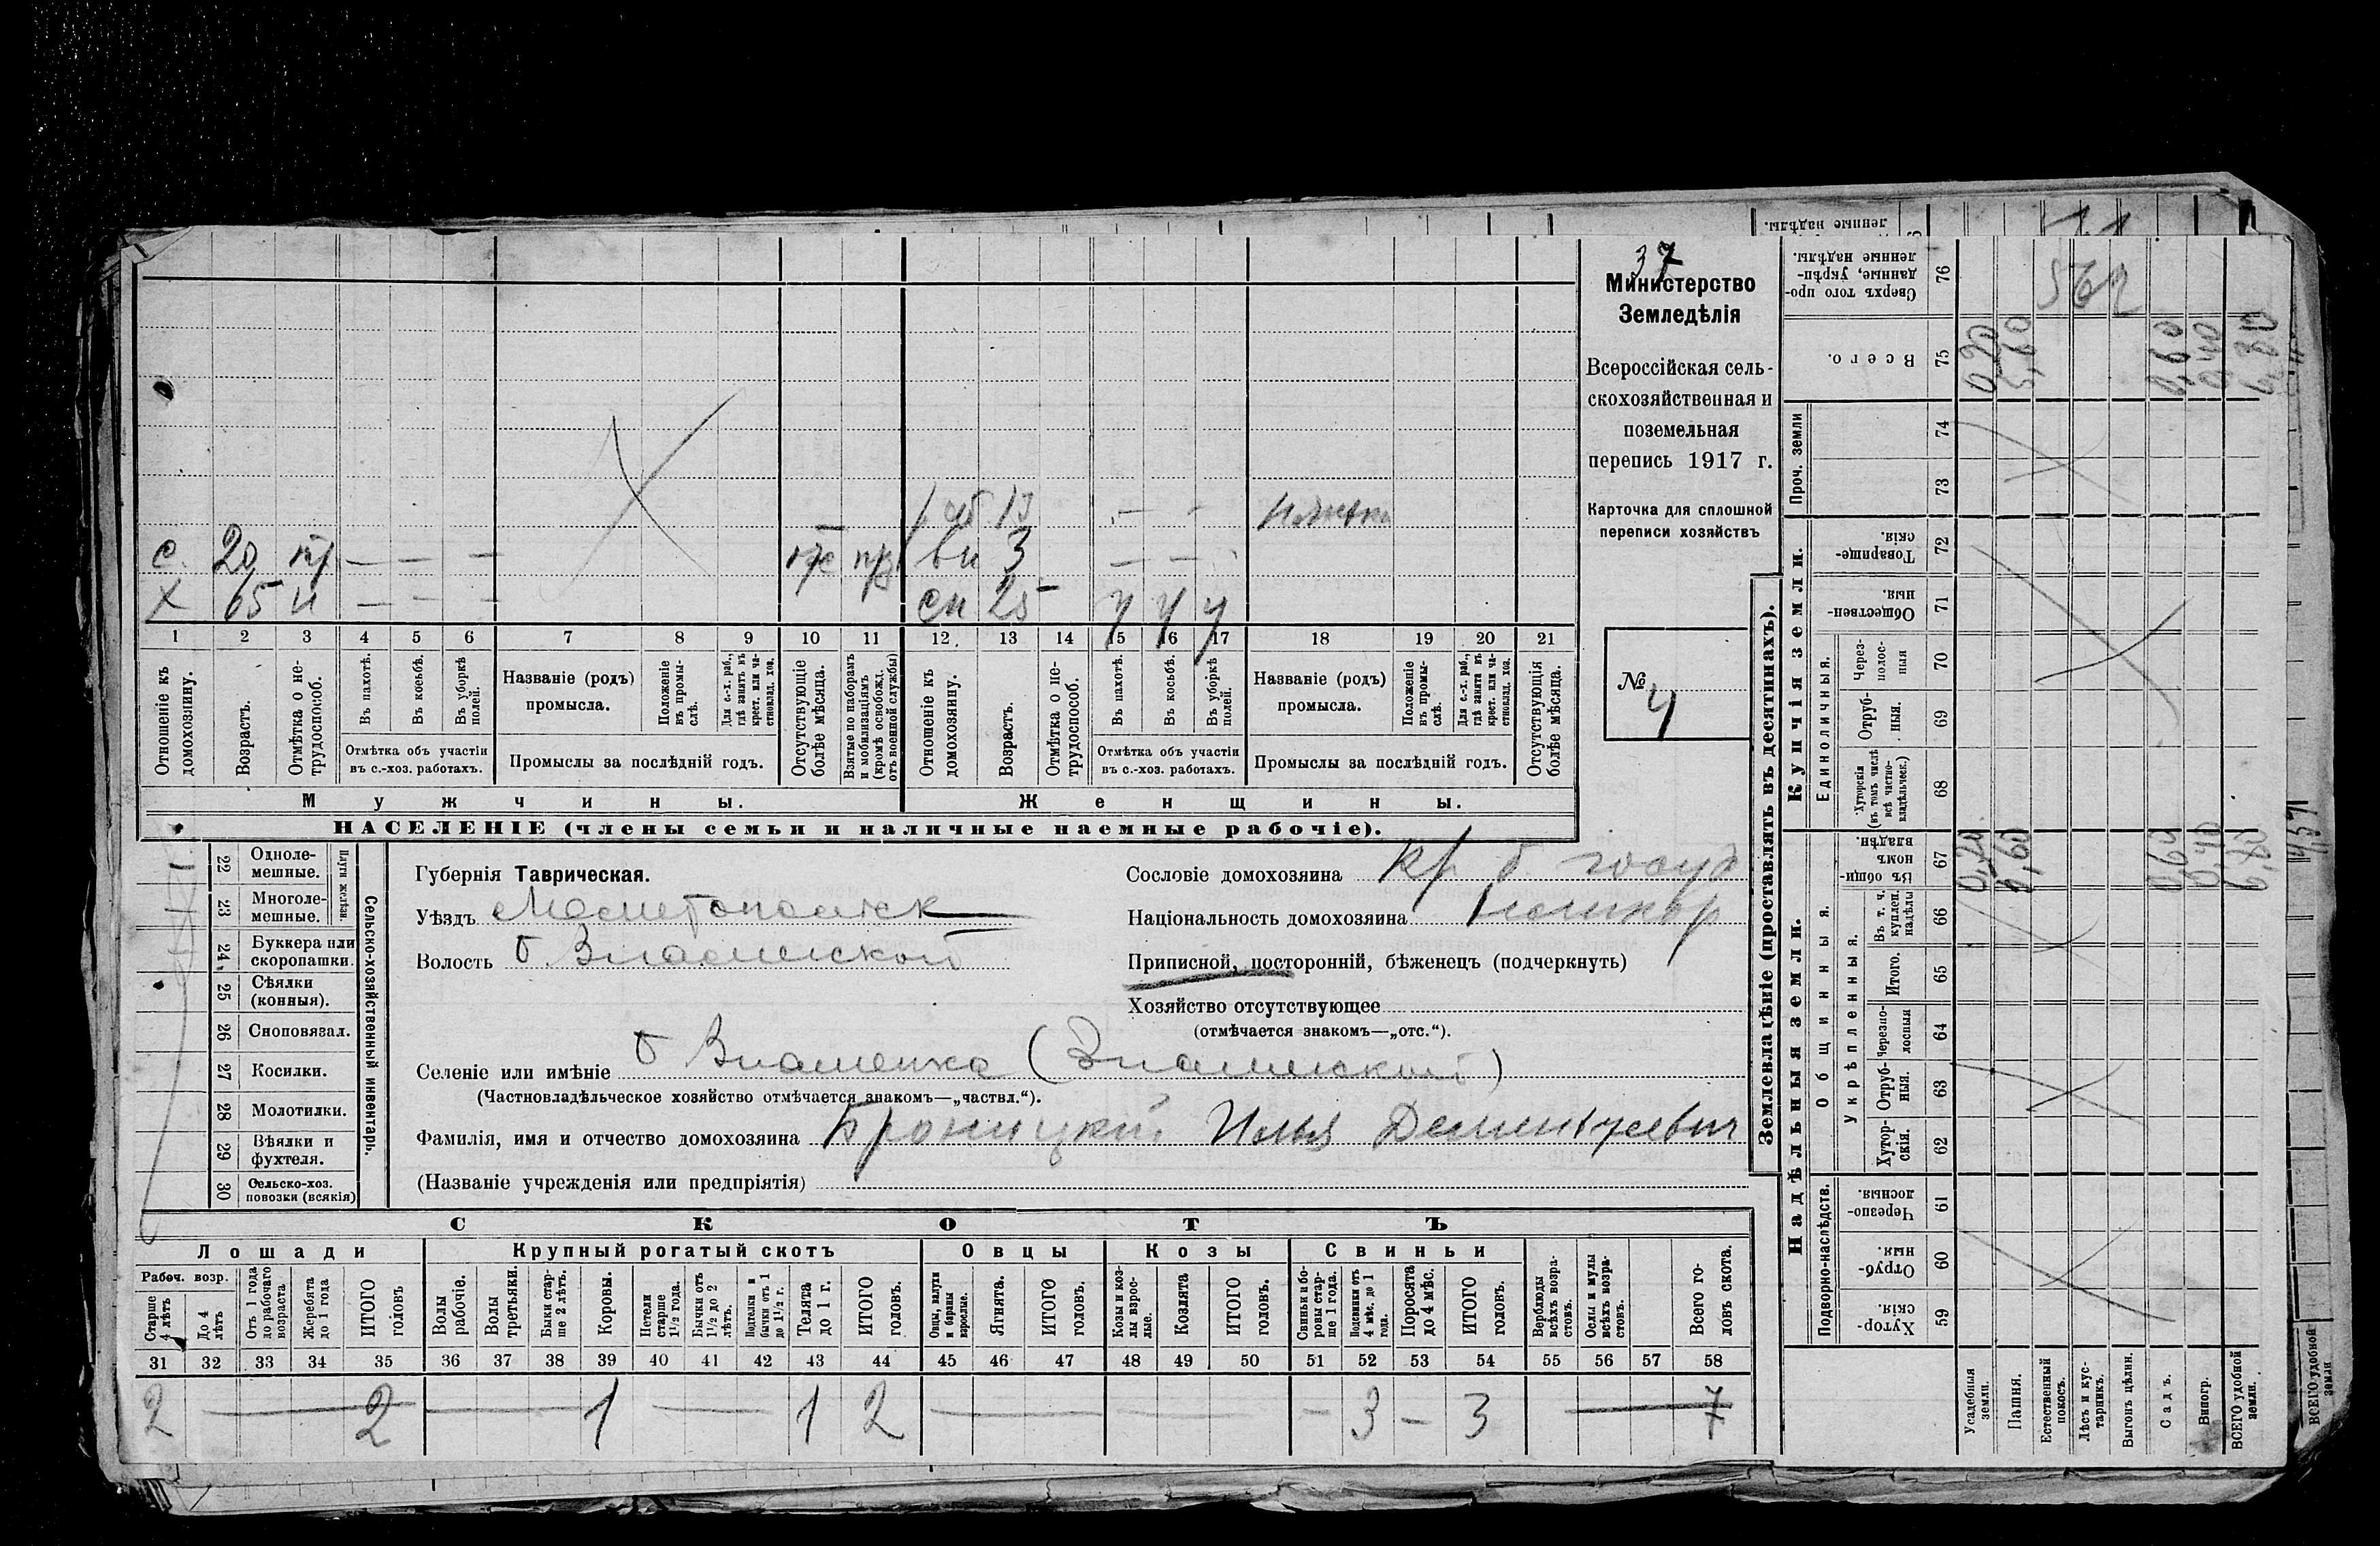 37
Министерство
Земледѣлія
Всероссійская сель-
скохозяйственная и
поземельная
перепись 1917 г.
Карточка для сплошной
переписи хозяйствъ
№ 4
1 13 — —
с. 20 — — — 3 — —
Х 65 н — — — сн 25 у у у
1 2 3 4 5 6 7 8 9 10 11 12 13 14 15 16 17 18 19 20 21
Отношеніе къ домохозяину.
Возрастъ.
Отмѣтка о нетрудоспособ.
Въ пахотѣ.
Въ косьбѣ.
Въ уборкѣ полей.
Отмѣтка объ участіи
въ с.-хоз. работахъ.
Названіе (родъ)
промысла.
Положеніе въ промыслѣ.
Для с.-х. раб., гдѣ занятъ въ крест. или частновлад. хоз.
Промыслы за послѣдній годъ.
Отсутствующіе болѣе мѣсяца.
Взятые по наборамъ и мобилизаціямъ (кромѣ освобожд. отъ военной службы)
Отношеніе къ домохозяину.
Возрастъ.
Отмѣтка о нетрудоспособ.
Въ пахотѣ.
Въ косьбѣ.
Въ уборкѣ полей.
Отмѣтка объ участіи
въ с.-хоз. работахъ.
Названіе (родъ)
промысла.
Положеніе въ промыслѣ.
Для с.-х. раб., гдѣ занята въ крест. или частновлад. хоз.
Промыслы за послѣдній годъ.
Отсутствующія болѣе мѣсяца.
Мужчины.
Женщины.
НАСЕЛЕНІЕ (члены семьи и наличные наемные рабочіе).
22 Одноле-
мешные.
23 Многоле-
мешные.
Плуги желѣзн.
24 Буккера или
скоропашки.
25 Сѣялки
(конныя).
26 Сноповязал.
27 Косилки.
28 Молотилки.
29 Вѣялки и
фухтеля.
30 Сельско-хоз.
повозки (всякія)
Сельско-хозяйственный инвентарь.
Губернія Таврическая.
Уѣздъ Мелитопольск
Волость Б. Знаменской
Селеніе или имѣніе Б Знаменка (Знаменской)
(Частновладѣльческое хозяйство отмѣчается знакомъ—„частвл.“).
Фамилія, имя и отчество домохозяина Броницкий Илья Дементьевич
(Названіе учрежденія или предпріятія)
Сословіе домохозяина кр. б. госуд
Національность домохозяина
Приписной, посторонній, бѣженецъ (подчеркнуть)
Хозяйство отсутствующее
(отмѣчается знакомъ—„отс.“).
СКОТЪ
Лошади
Крупный рогатый скотъ
Овцы
Козы
Свиньи
Рабоч. возр.
Старше 4 лѣтъ
До 4 лѣтъ
Отъ 1 года до рабочаго возраста
Жеребята до 1 года
ИТОГО головъ
Волы рабочіе.
Волы третьяки.
Быки старше 2 лѣтъ.
Коровы.
Нетели старше 1½ года.
Бычки отъ 1½ до 2 лѣтъ.
Подтелки и бычки отъ 1 до 1½ г.
Телята до 1 г.
ИТОГО головъ.
Овцы, валухи и бараны взрослые.
Ягнята.
ИТОГО головъ.
Козы и козлы взрослые.
Козлята
ИТОГО головъ.
Свиньи и боровы старше 1 года.
Подсвинки отъ 4 мѣс. до 1 года.
Поросята до 4 мѣс.
ИТОГО головъ.
Верблюды всѣхъ возрастовъ.
Ослы и мулы всѣхъ возрастовъ.
Всего головъ скота.
31 32 33 34 35 36 37 38 39 40 41 42 43 44 45 46 47 48 49 50 51 52 53 54 55 56 57 58
2 — 2 — 1 — 1 2 — — — 3 — 3 — 7
Землевладѣніе (проставлять въ десятинахъ).
Сверхъ того проданные, укрѣпленные надѣлы. 76
Всего. 75
Проч. земли
74
73
Купчія земли.
Товарищескія. 72
Общественныя. 71
Единоличныя.
Черезполосныя 70
Отрубныя. 69
Хуторскія (въ томъ числѣ всѣ частновладѣльческ.) 68
Надѣльныя земли.
Общинныя.
Въ общинномъ владѣн. 67
Укрѣпленныя.
Въ т. ч. куплен. надѣлы 66
Итого. 65
Черезполосныя 64
Отрубныя. 63
Хуторскія. 62
Подворно-наслѣдств.
Черезполосныя. 61
Отрубныя. 60
Хуторскія. 59
Усадебныя земли.
Пашня.
Естественный покосъ.
Лѣсъ и кустарникъ.
Выгонъ цѣлин.
Садъ.
Виногр.
ВСЕГО удобной земли.
0,20
5,60
0,60
0,40
6,80
0,20
5,60
0,60
0,40
6,80
ВСЕГО удобной земли